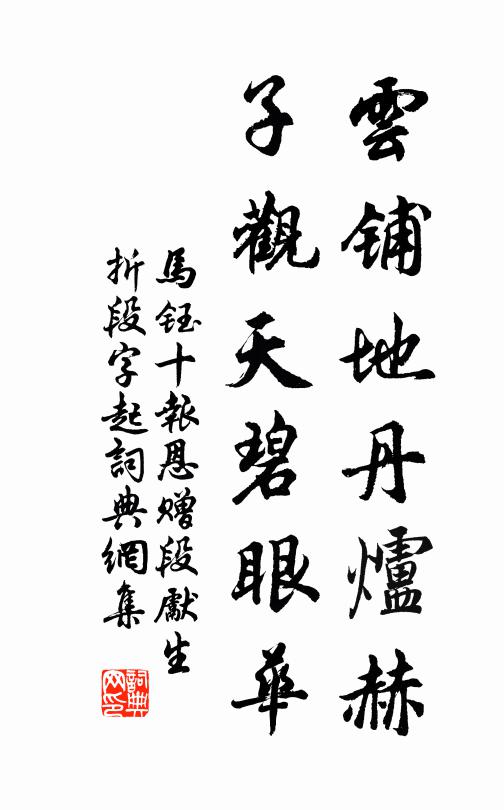 雲铺地丹爐赫
子觀天碧眼華
馬鈺十報恩赠段獻生
折段字起詞典網集
詞典网印